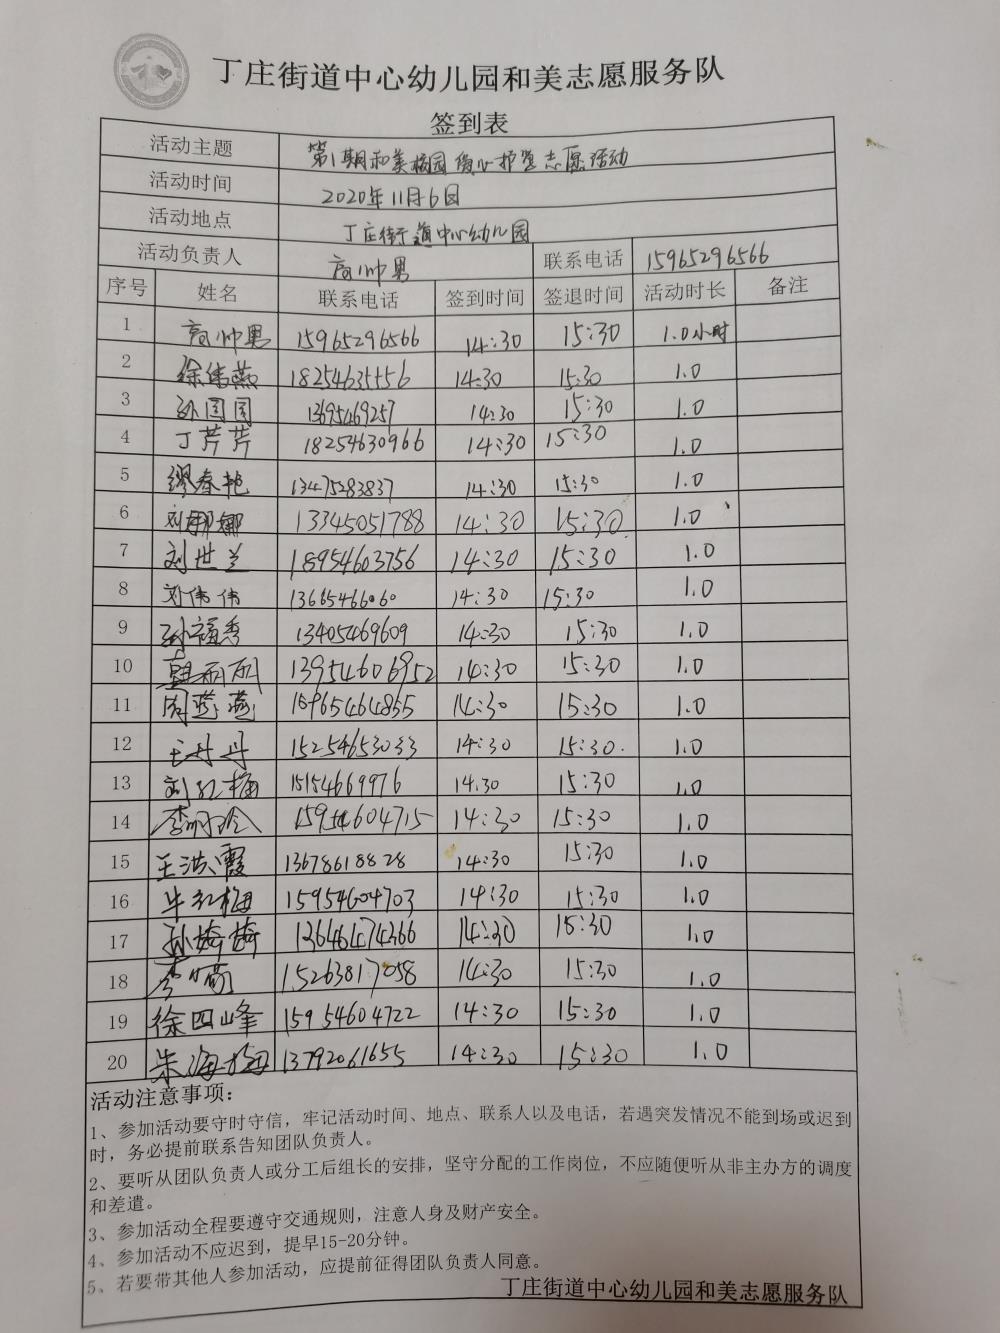 丁庄街道中心幼儿园和美志愿服务队
签到表
活动主题 第1期和美校园爱心护学志愿活动
活动时间 2020年11月6日
活动地点 丁庄街道中心幼儿园
活动负责人 高帅男 联系电话 15965296566
序号 姓名 联系电话 签到时间 签退时间 活动时长 备注
1 高帅男 15965296566 14:30 15:30 1.0小时
2 徐伟燕 14:30 15:30 1.0
3 孙圆圆 13695469257 14:30 15:30 1.0
4 丁芹芹 18254630966 14:30 15:30 1.0
5 缪春艳 13475283837 14:30 15:30 1.0
6 刘娜娜 13345051788 14:30 15:30 1.0
7 刘世兰 18954603756 14:30 15:30 1.0
8 刘伟伟 13665466060 14:30 15:30 1.0
9 孙福香 13405469609 14:30 15:30 1.0
10 韩丽丽 13954606952 14:30 15:30 1.0
11 周燕燕 15965464855 14:30 15:30 1.0
12 王丹丹 15254653033 14:30 15:30 1.0
13 刘红梅 15154669976 14:30 15:30 1.0
14 李明玲 15954604715 14:30 15:30 1.0
15 王洪霞 13678618828 14:30 15:30 1.0
16 牛红梅 15954604703 14:30 15:30 1.0
17 孙婷婷 13646474366 14:30 15:30 1.0
18 李 15263817058 14:30 15:30 1.0
19 徐四峰 15954604722 14:30 15:30 1.0
20 朱海梅 13792061655 14:30 15:30 1.0
活动注意事项：
1、参加活动要守时守信，牢记活动时间、地点、联系人以及电话，若遇突发情况不能到场或迟到
时，务必提前联系告知团队负责人。
2、要听从团队负责人或分工后组长的安排，坚守分配的工作岗位，不应随便听从非主办方的调度
和差遣。
3、参加活动全程要遵守交通规则，注意人身及财产安全。
4、参加活动不应迟到，提早15-20分钟。
5、若要带其他人参加活动，应提前征得团队负责人同意。
丁庄街道中心幼儿园和美志愿服务队